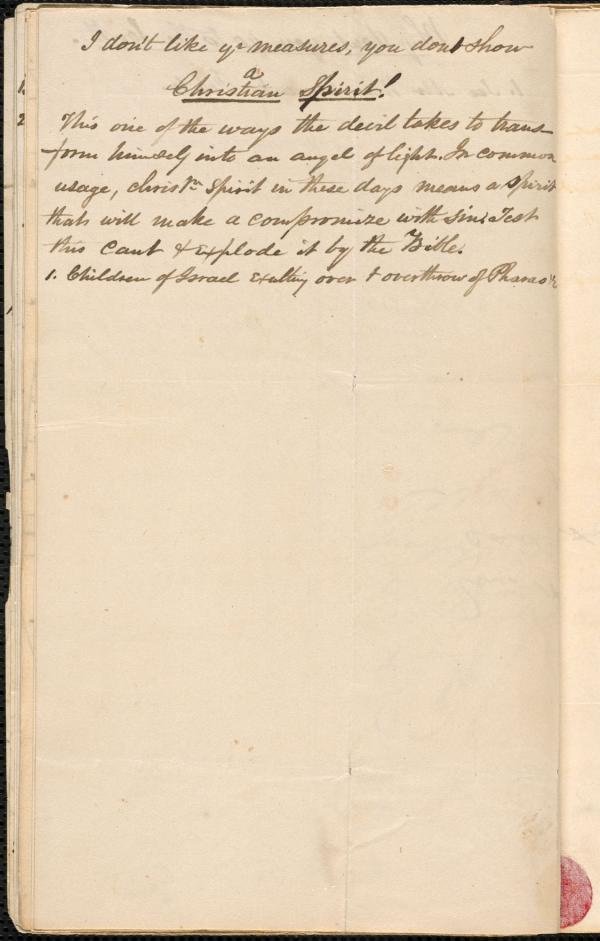 I don't like yr measures, you dont show
a
Christian Spirit!
This one of the ways the devil takes to trans-
form himself into an angel of light. In common
usage, christn Spirit in these days means a spirit
thats will make a compromize with sin. Test
this cant & explode it by the Bible.
1. Children of Israel exulting over & overthrow of Pharaoh